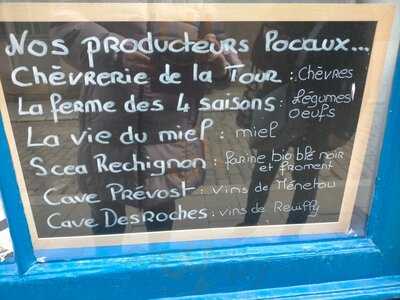 Nos producteurs Locaux...
Chèvrerie de la Tour : Chèvres
La ferme des 4 saisons : Légumes
Oeufs
La vie du miel : miel
Scea Rechignon : farine bio blé noir
et froment
Cave Prévost : vins de Ménetou
Cave Desroches : vins de Reuilly